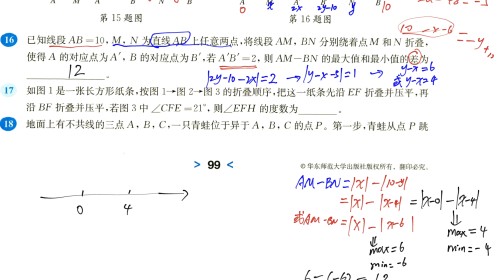 A O x 2x 2y-10 y B 10
第 15 题图
第 16 题图
10-x-6
16 已知线段 AB=10, M, N 为直线 AB 上任意两点,将线段 AM, BN 分别绕着点 M 和 N 折叠,
使得 A 的对应点为 A′, B 的对应点为 B′,若 A′B′=2, 则 AM-BN 的最大值和最小值的差为
12
|2y-10-2x|=2 → |y-x-5|=1 → y-x=6
或 y-x=4
17 如图 1 是一张长方形纸条,按图 1→图 2→图 3 的折叠顺序,把这一纸条先沿 EF 折叠并压平,再
沿 BF 折叠并压平,若图 3 中∠CFE=21°,则∠EFH 的度数为
18 地面上有不共线的三点 A, B, C,一只青蛙位于异于 A, B, C 的点 P。第一步,青蛙从点 P 跳
> 99 <
© 华东师范大学出版社版权所有,翻印必究。
AM-BN=|x|-|10-y|
=|x|-|x-4|=|x-0|-|x-4|
0 4
或AM-BN=|x|-|x-6|
max=4
min=-4
max=6
min=-6
6-(-6)=12